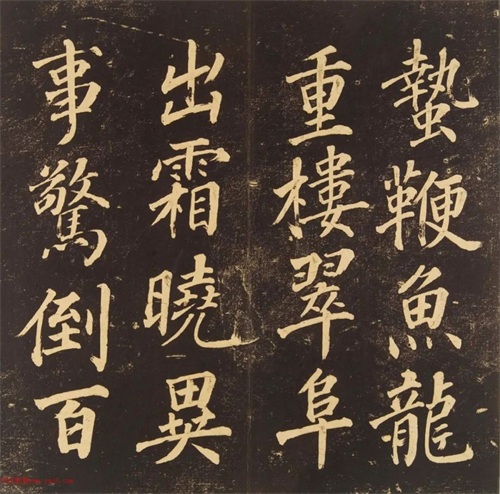 蟄鞭魚龍
重樓翠阜
出霜曉異
事驚倒百